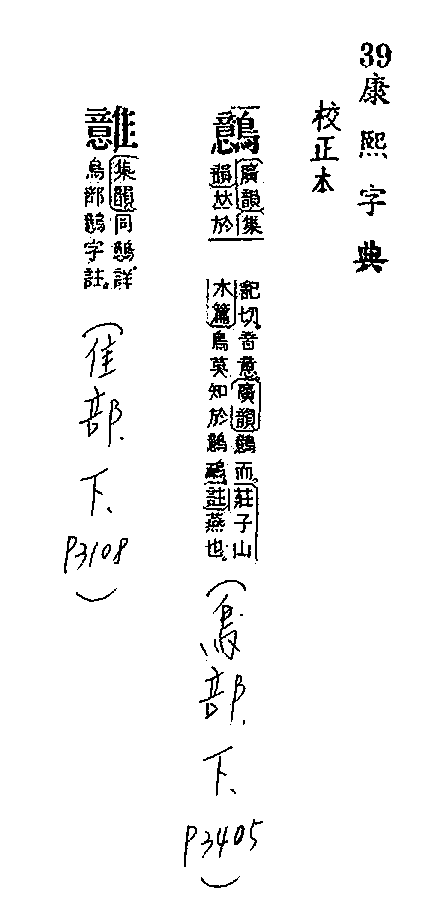 39
康熙字典
校正本
鷾
廣韻集
韻𠀤於
記切音意廣韻鷾而莊子山
木篇鳥莫知於鷾鴯註燕也
(鳥部.下.P3405)
䧝
集韻同鷾詳
鳥部鷾字註
(隹部.下.P3108)